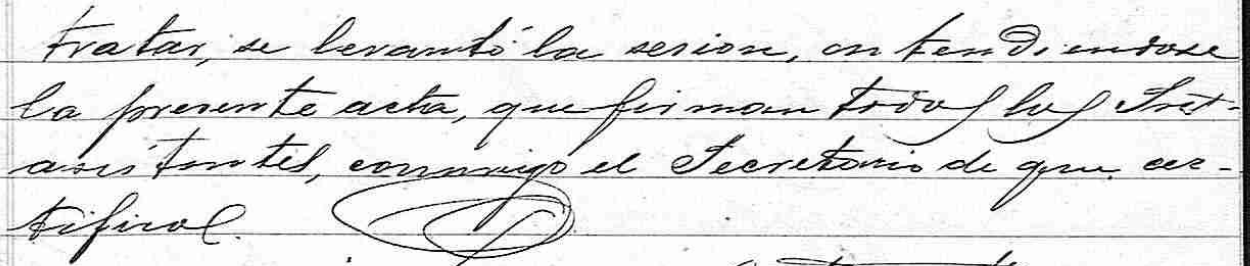 tratar, se levantó la sesion, entendiendose
la presente acta, que firman todos los Sres.
asistentes, conmigo el Secretario de que cer-
tifico.